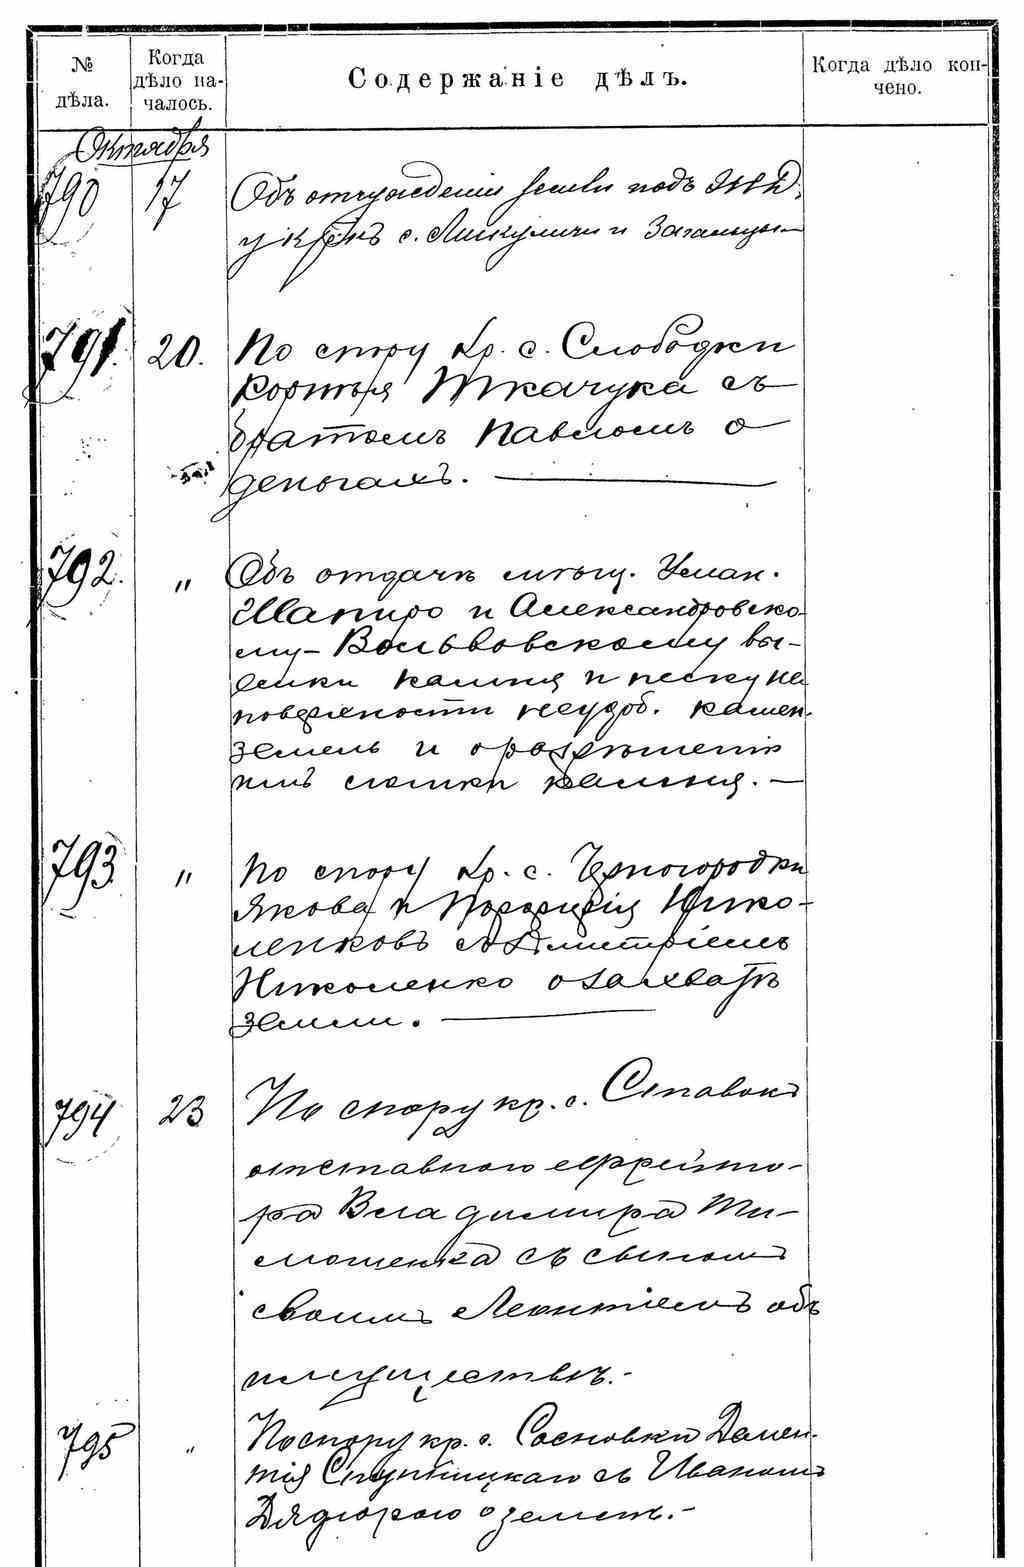 № дѣла.
Когда дѣло на-
чалось.
Содержаніе дѣлъ.
Когда дѣло кон-
чено.
Октября
790 17 Объ отчужденіи земли подъ
у кр. с. Микуличи и Загальцы
791. 20. По спору кр. с. Слободки
Ткачука съ
братомъ Павломъ о
деньгахъ.
792. „ Объ отдачѣ мѣщ. Уман.
Шапиро и Александровско-
му - Вольвовскому вы-
емки камня и песку на
поверхности неудоб. камен.
земель и о разрѣшеніи
имъ ломки камня. —
793 „ По спору кр. с. Черногородки
Якова и Порфирія Нико-
ленковъ съ Дмитріемъ
Николенко о захватѣ
земли.
794 23 По спору кр. с. Ставокъ
отставного ефрейто-
ра Владимира Ти-
мошенка съ сыномъ
своимъ Леонтіемъ объ
имуществѣ. -
795 „ По спору кр. с. Сосновки Домен-
тія Ступницкаго съ Иваномъ
о землѣ. -